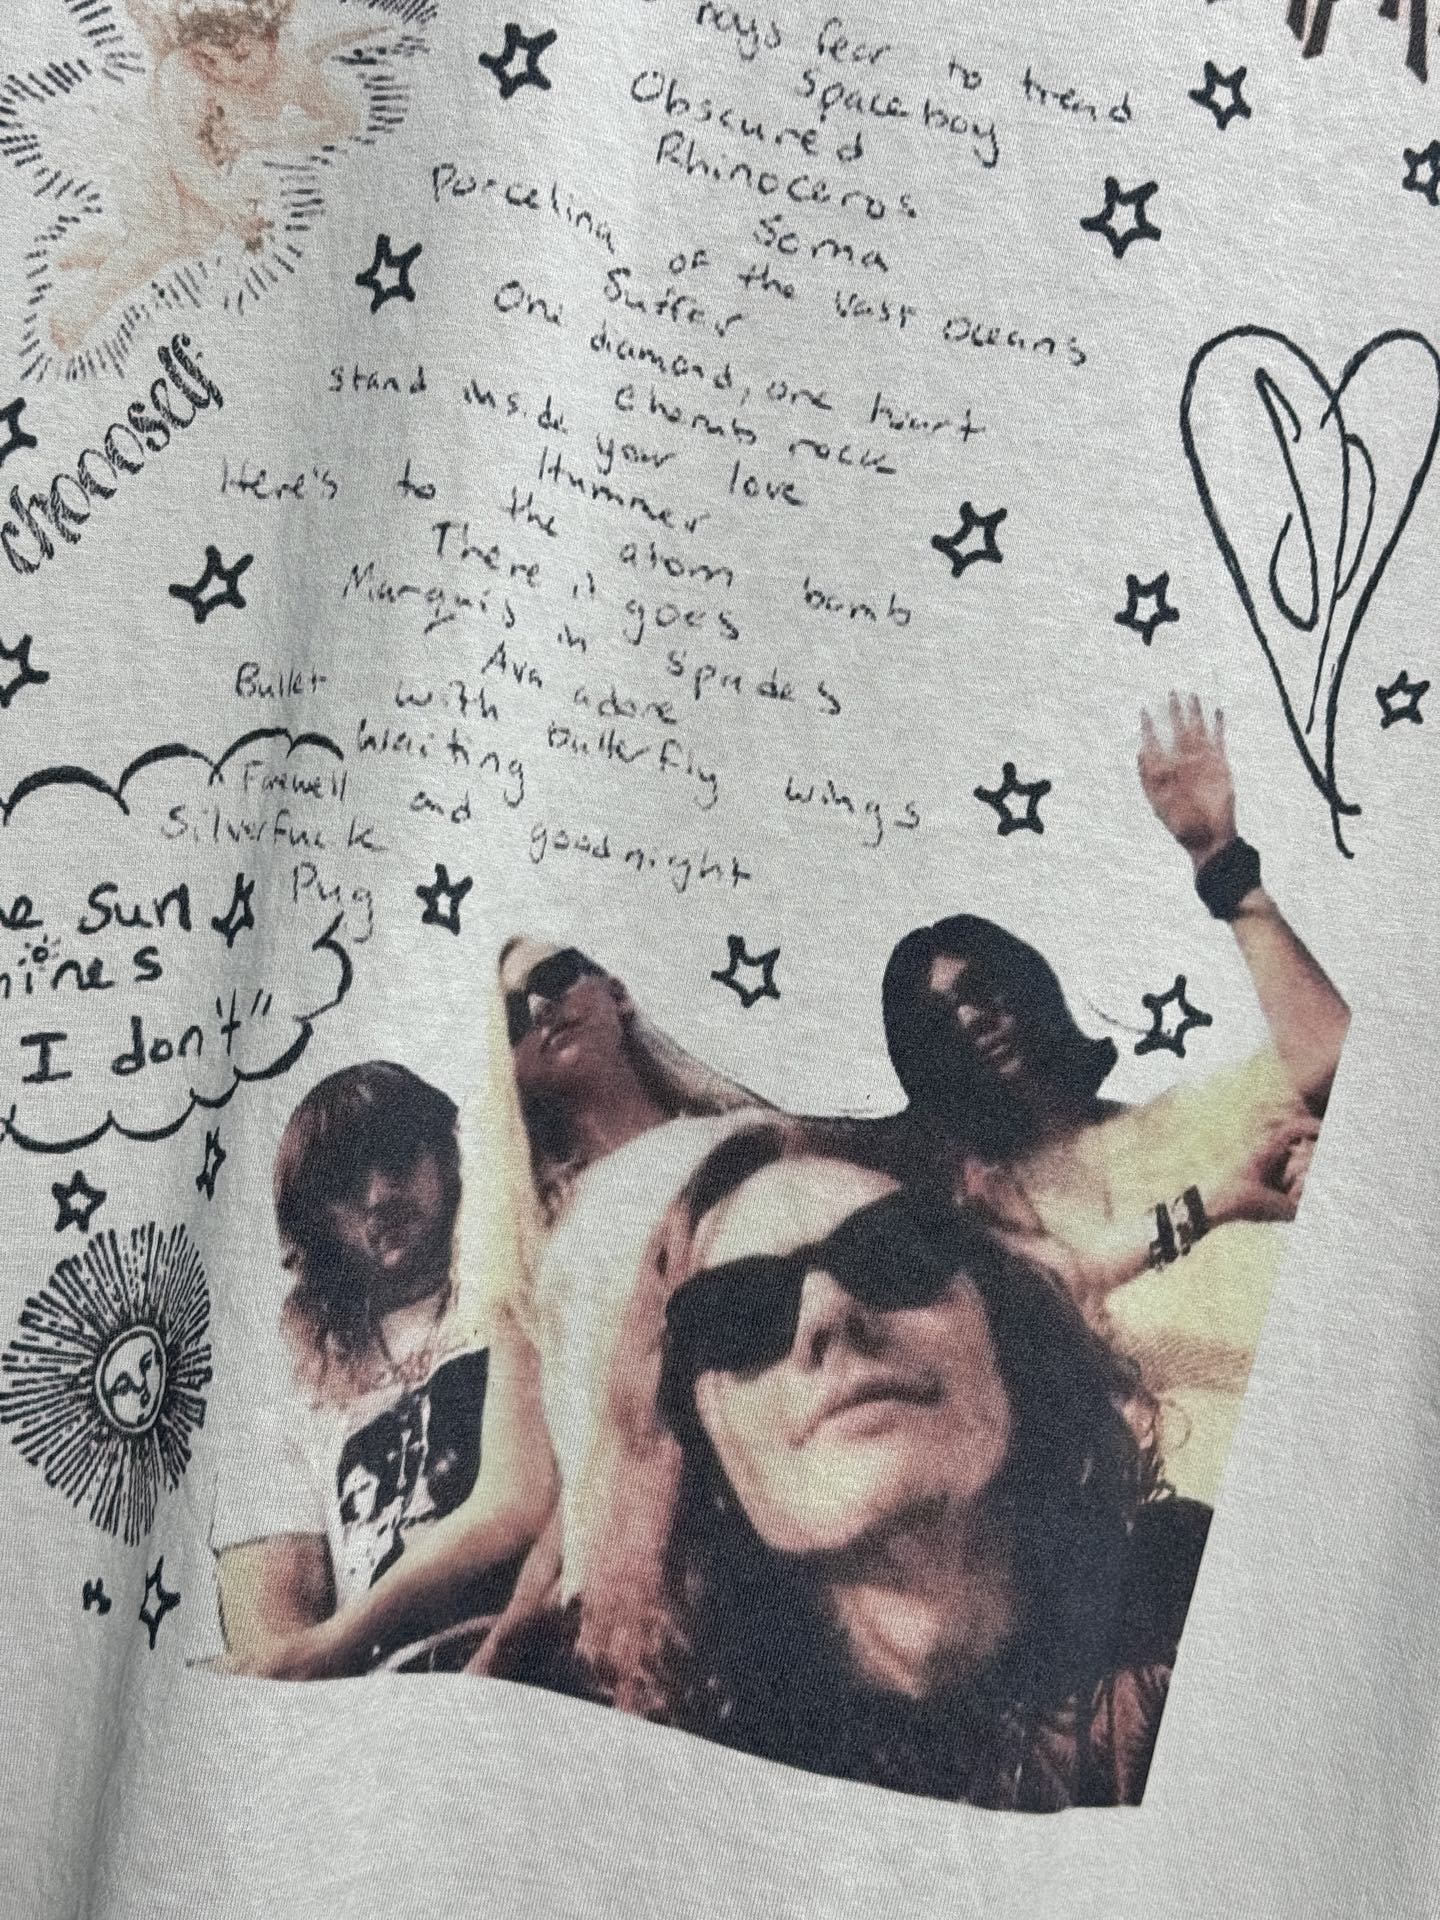 rays fear to trend
Spaceboy
Obscured
Rhinoceros
Soma
Porcelina of the vast oceans
Suffer
One diamond, one heart
Cherub rock
stand inside your love
Hummer
Here's to the atom bomb
There it goes
Marquis in Spades
Ava adore
Bullet with Butterfly wings
Waiting
Farewell and goodnight
Silverfuck
Pug
chooself
Sun
I don't"